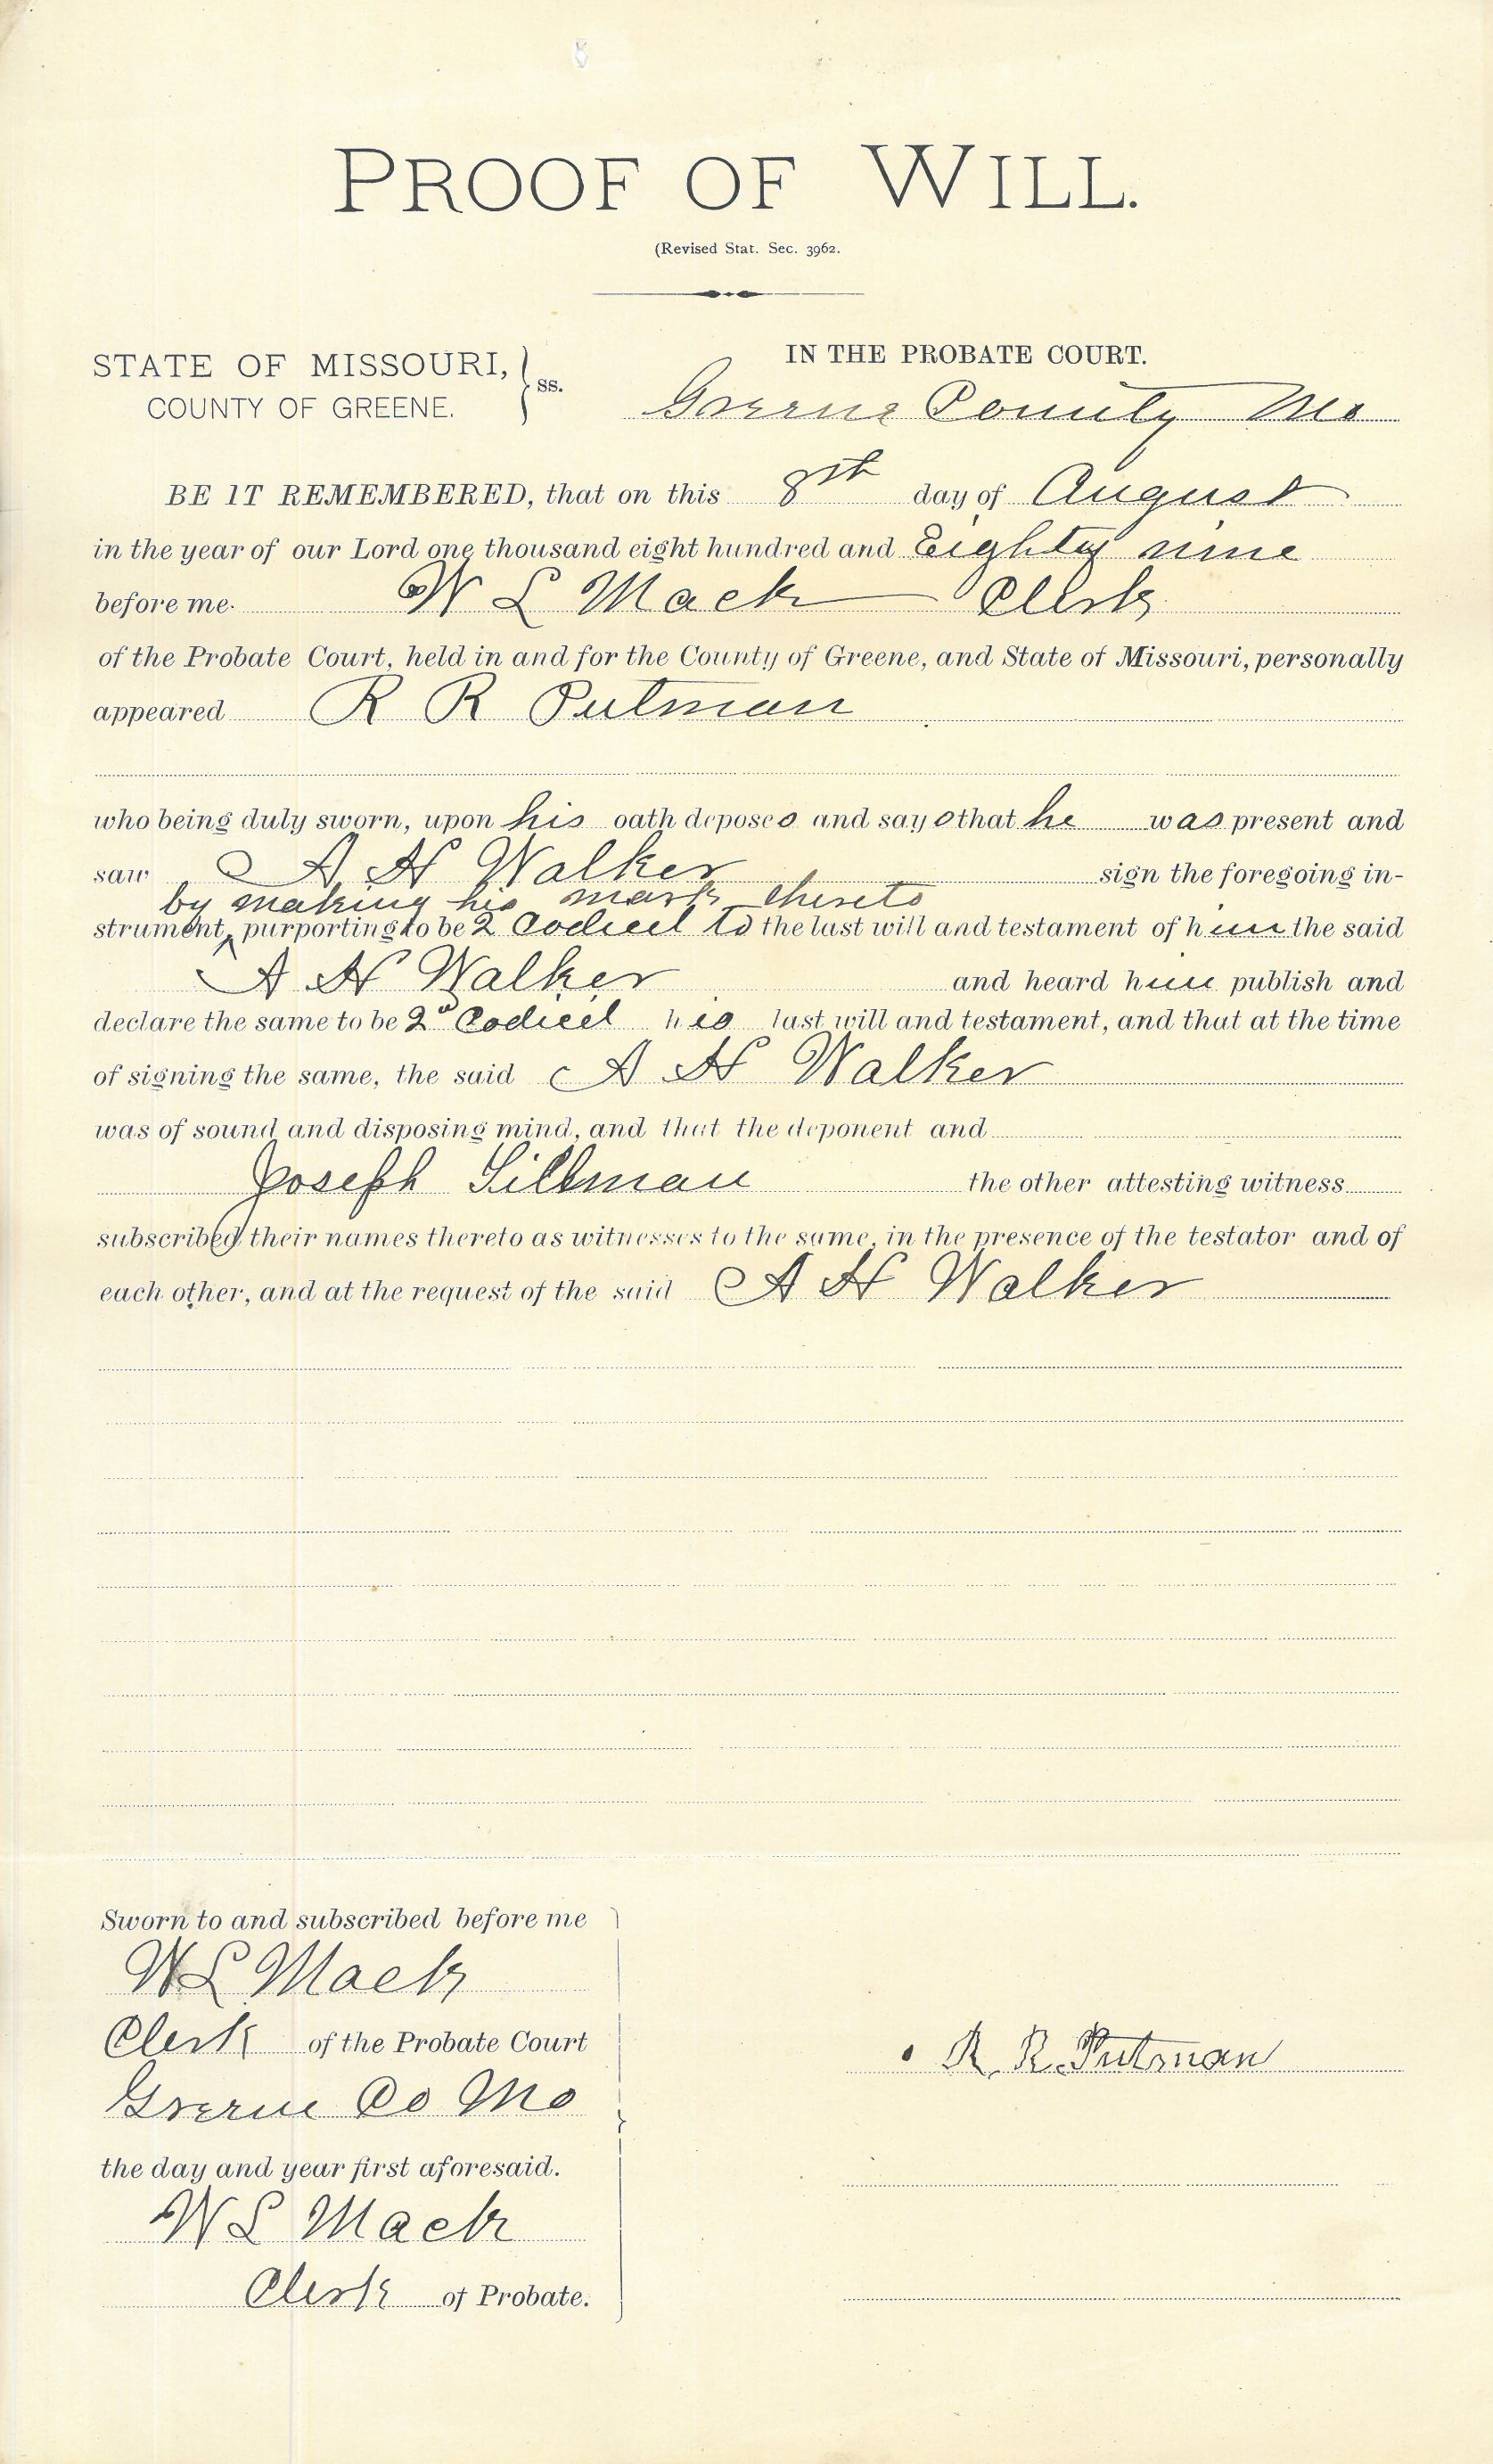 PROOF OF WILL.
(Revised Stat. Sec. 3962.
STATE OF MISSOURI,
COUNTY OF GREENE.
ss.
IN THE PROBATE COURT.
Greene County Mo
BE IT REMEMBERED, that on this 8th day of August
in the year of our Lord one thousand eight hundred and Eighty nine
before me. W L Mack Clerk
of the Probate Court, held in and for the County of Greene, and State of Missouri, personally
appeared R R Putman
who being duly sworn, upon his oath deposes and says that he was present and
saw A H Walker sign the foregoing in-
by making his mark thereto
strument, purporting to be 2 Codicil to the last will and testament of him the said
A H Walker and heard him publish and
declare the same to be 2d Codicil his last will and testament, and that at the time
of signing the same, the said A H Walker
was of sound and disposing mind, and that the deponent and
Joseph the other attesting witness
subscribed their names thereto as witnesses to the same, in the presence of the testator and of
each other, and at the request of the said A H Walker
Sworn to and subscribed before me
W L Mack
Clerk of the Probate Court
Greene Co Mo
the day and year first aforesaid.
W L Mack
Clerk of Probate.
R. R. Putman